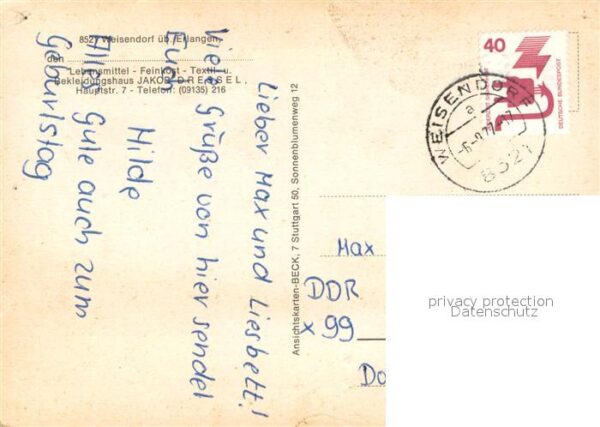 8521 Weisendorf üb. Erlangen,
den
Lebensmittel - Feinkost - Textil- u.
Bekleidungshaus JAKOB DREISEL,
Hauptstr. 7 - Telefon: (09135) 216
Lieber Max und Liesbett!
Viele Grüße von hier sendet
Euch
Hilde
Alles Gute auch zum
Geburtstag
Ansichtskarten-BECK, 7 Stuttgart 50, Sonnenblumenweg 12
40
DEUTSCHE BUNDESPOST
WEISENDORF
a
8521
Max
DDR
x 99
Do
privacy protection
Datenschutz